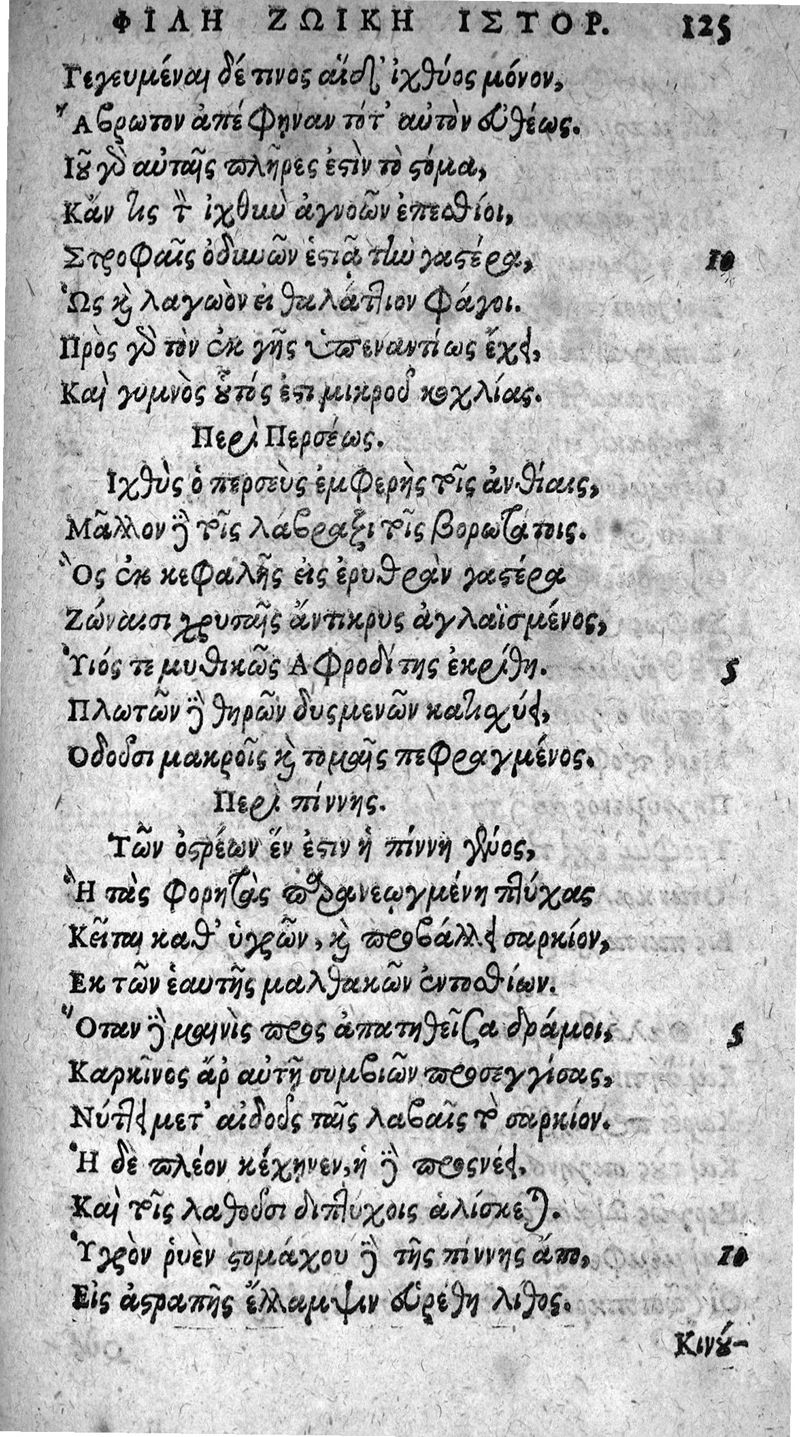 ΦΙΛΗ ΖΩΙΚΗ ΙΣΤΟΡ. 125
Γεγευμέναι δέ τινος αἵδ' ἰχθύος μόνον,
Ἄβρωτον ἀπέφηναν τότ' αὐτὸν εὐθέως.
Ἰοῦ γὸ αὐταῖς πλῆρες ἐστὶν τὸ στόμα,
Κἄν τις τ ἰχθυῦ ἀγνοῶν ἐπεσθίοι,
Στροφαῖς ὀδυνῶν ἑστιᾷ τὴν γαστέρα, 10
Ὡς καὶ λαγωὸν εἰ θαλάττιον φάγοι.
Πρὸς γὸ τὸν ἐκ γῆς ὑπεναντίως ἔχει,
Καὶ γυμνὸς οὗτός ἐστι μικροῦ κοχλίας.
Περὶ Περσέως.
Ιχθὺς ὁ περσεὺς ἐμφερὴς τοῖς ἀνθίαις,
Μᾶλλον δὲ τοῖς λάβραξι τοῖς βορωτάτοις.
Ὃς ἐκ κεφαλῆς εἰς ἐρυθρὰν γαστέρα
Ζώναισι χρυσαῖς ἄντικρυς ἀγλαϊσμένος,
Ὑιός τε μυθικῶς Αφροδίτης ἐκρίθη. 5
Πλωτῶν δὲ θηρῶν δυσμενῶν κατισχύει,
Οδοῦσι μακροῖς καὶ τομαῖς πεφραγμένος.
Περὶ πίννης.
Τῶν ὀστρέων ἕν ἐστιν ἡ πίννη γένος,
Ἣ τὰς φορητὰς παρανεῳγμένη πτύχας
Κεῖται καθ' ὑγρῶν, καὶ προβάλλει σαρκίον,
Εκ τῶν ἑαυτῆς μαλθακῶν ἐντοσθίων.
Ὅταν δὲ μαινὶς πρὸς ἀπατηθεῖσα δράμοι, 5
Καρκῖνος ἄρ αὐτῇ συμβιῶν προσεγγίσας,
Νύττει μετ' αἰδοῦς ταῖς λαβαῖς τὸ σαρκίον.
Ἡ δὲ πλέον κέχηνεν, ἡ δὲ προςνέει,
Καὶ τοῖς λαθοῦσι διπτύχοις ἁλίσκεται.
Ὑγρὸν ῥυὲν στομάχου δὲ τῆς πίννης ἄπο, 10
Εἰς ἀστραπῆς ἔλλαμψιν εὑρέθη λίθος.
Κινού-